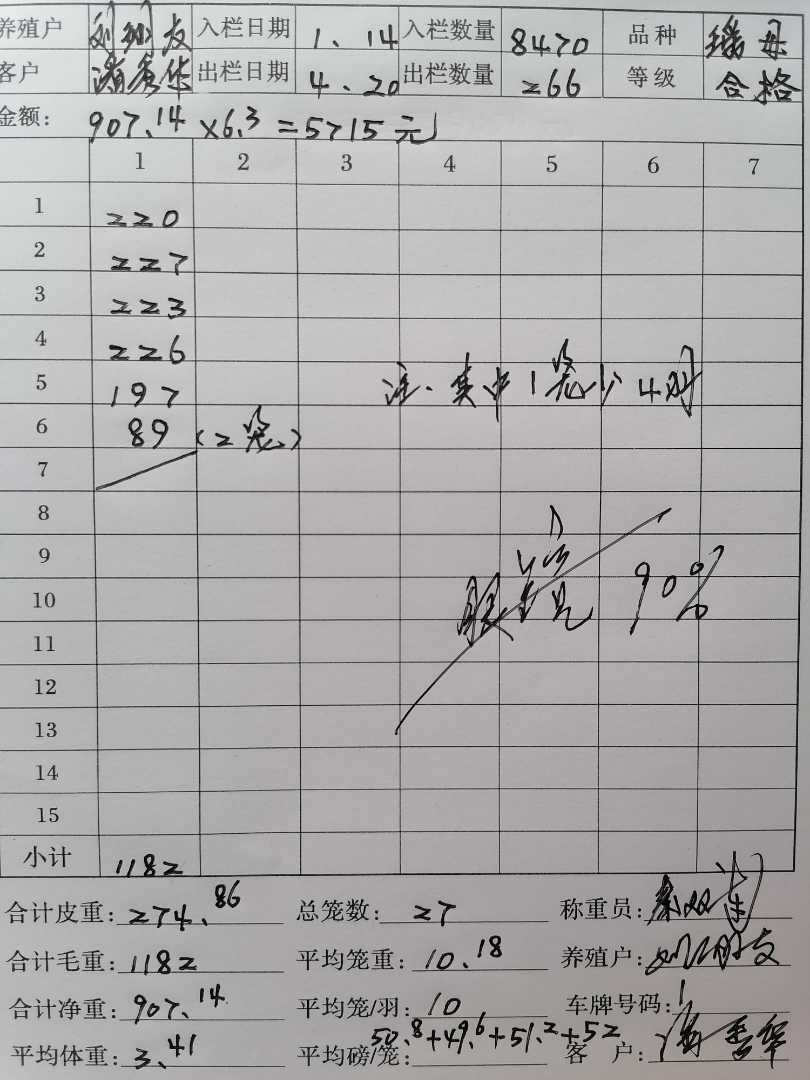 养殖户 入栏日期 1.14 入栏数量 8470 品种
客户 出栏日期 4.20 出栏数量 266 等级 合格
金额: 907.14 ×6.3 =5715元
1 2 3 4 5 6 7
1 220
2 227
3 223
4 226
5 197 注.其中1笼少4羽
6 89 (2笼)
7
8
9
10 90%
11
12
13
14
15
小计 1182
合计皮重: 274.86 总笼数: 27 称重员:
合计毛重: 1182 平均笼重: 10.18 养殖户:
合计净重: 907.14 平均笼/羽: 10 车牌号码: 1
平均体重: 3.41 平均磅/笼: 50.8+49.6+51.2+52 客 户: